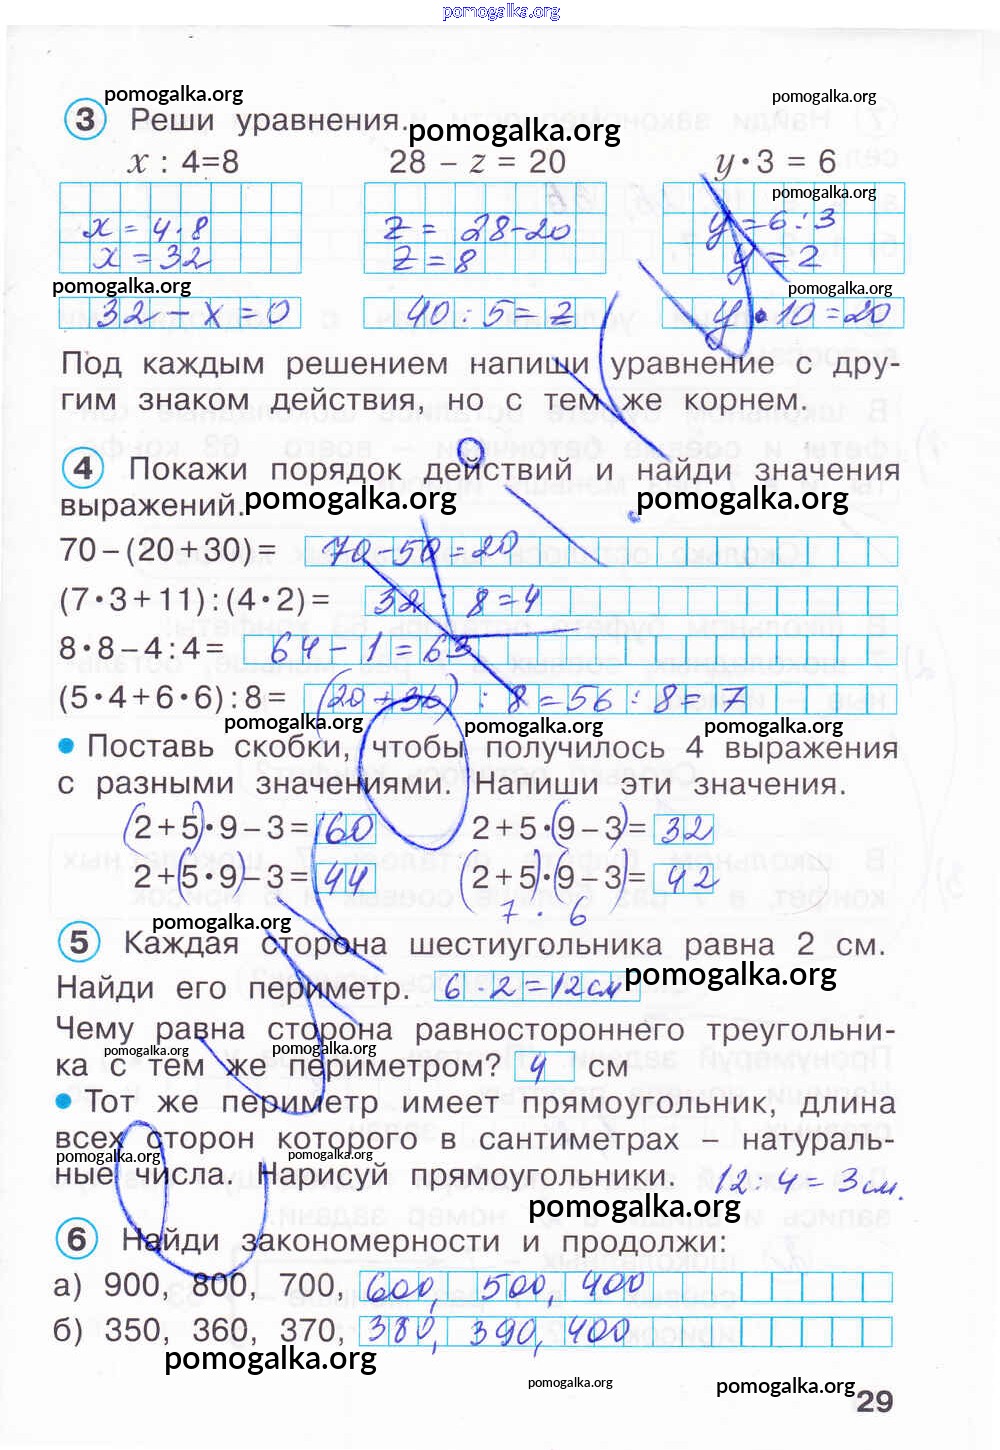 pomogalka.org
pomogalka.org
pomogalka.org
3 Реши уравнения.
pomogalka.org
x : 4=8 28 – z = 20 y·3 = 6
pomogalka.org
x = 4·8 z = 28-20 y = 6:3
x = 32 z = 8 y = 2
pomogalka.org pomogalka.org
32 – x = 0 40 : 5 = z y·10 = 20
Под каждым решением напиши уравнение с дру-
гим знаком действия, но с тем же корнем.
4 Покажи порядок действий и найди значения
выражений.
pomogalka.org pomogalka.org
70 – (20 + 30) = 70-50=20
(7·3 + 11) : (4·2) = 32 : 8=4
8·8 – 4 : 4 = 64 - 1 = 63
(5·4 + 6·6) : 8 = (20+36) : 8=56 : 8=7
pomogalka.org pomogalka.org pomogalka.org
Поставь скобки, чтобы получилось 4 выражения
с разными значениями. Напиши эти значения.
(2 + 5)·9 – 3 = 60 2 + 5·(9 – 3) = 32
2 + (5·9) – 3 = 44 (2 + 5)·(9 – 3) = 42
7 · 6
pomogalka.org
5 Каждая сторона шестиугольника равна 2 см.
Найди его периметр. 6 · 2 = 12 см
pomogalka.org
Чему равна сторона равностороннего треугольни-
pomogalka.org pomogalka.org
ка с тем же периметром? 4 см
Тот же периметр имеет прямоугольник, длина
всех сторон которого в сантиметрах – натураль-
pomogalka.org pomogalka.org
ные числа. Нарисуй прямоугольники. 12:4=3см.
pomogalka.org
6 Найди закономерности и продолжи:
а) 900, 800, 700, 600, 500, 400
б) 350, 360, 370, 380, 390, 400
pomogalka.org
pomogalka.org pomogalka.org
29